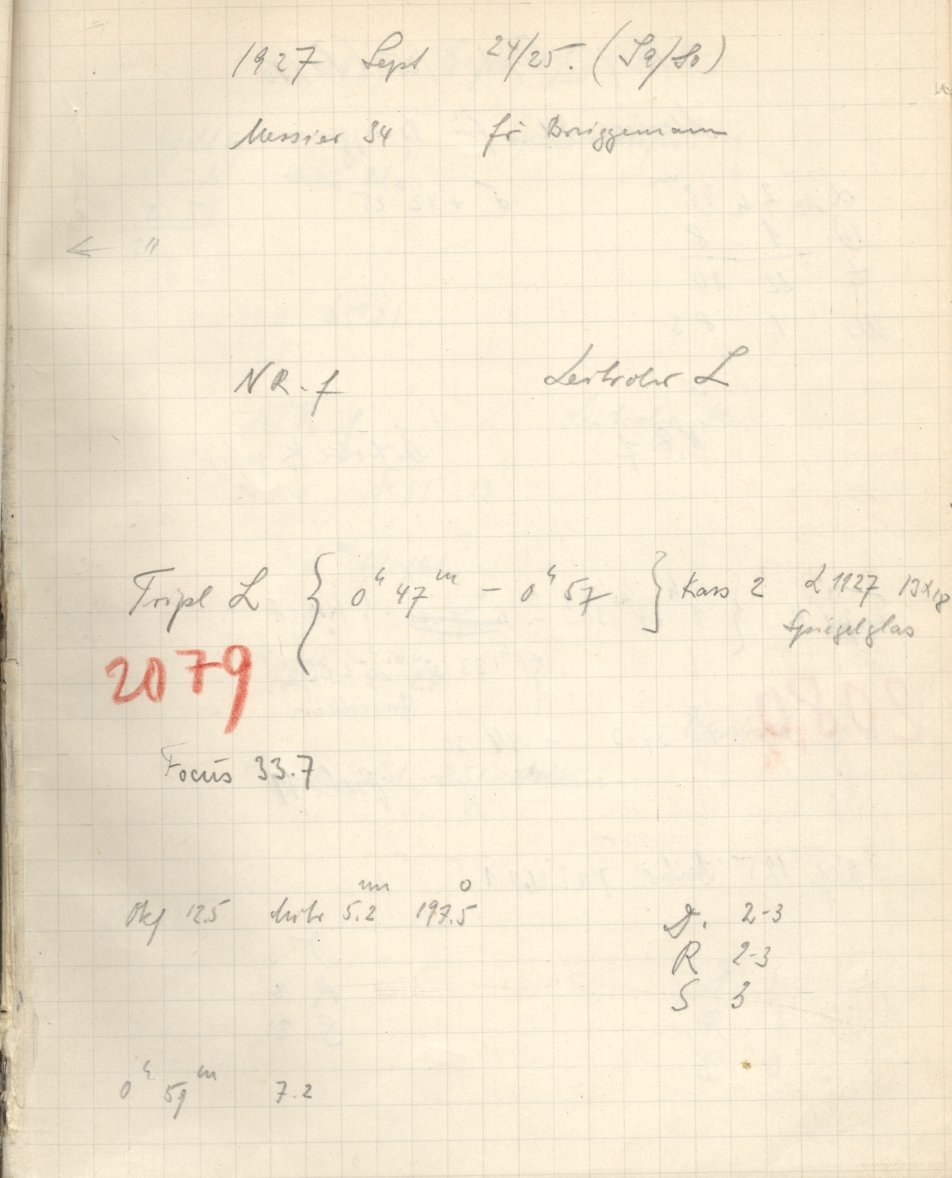 1927 Sept 24/25. (Sa/So)
Messier 34 für Brüggemann
← "
NR-f Leitrohr L
Tripl L { 0ʰ 47ᵐ – 0ʰ 57 } Kass 2 1927 13x18
Spiegelglas
2079
Focus 33.7
Okf 12.5 Mitte 5.2ᵐᵐ 197.5°
D. 2-3
R 2-3
S 3
0ʰ 59ᵐ 7.2